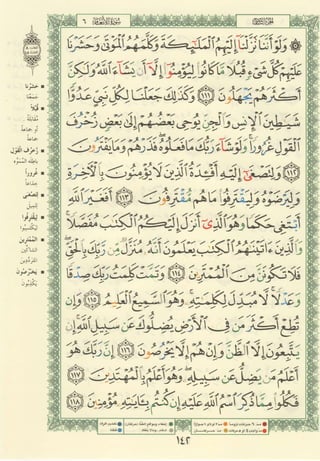 سُورَةُ الأَنْعَامِ ٦
الجُزْءُ الثَّامِنُ
۞ وَلَوْ أَنَّنَا نَزَّلْنَا إِلَيْهِمُ الْمَلَائِكَةَ وَكَلَّمَهُمُ الْمَوْتَىٰ وَحَشَرْنَا
عَلَيْهِمْ كُلَّ شَيْءٍ قُبُلًا مَا كَانُوا لِيُؤْمِنُوا إِلَّا أَنْ يَشَاءَ اللَّهُ وَلَٰكِنَّ
أَكْثَرَهُمْ يَجْهَلُونَ ١١١ وَكَذَٰلِكَ جَعَلْنَا لِكُلِّ نَبِيٍّ عَدُوًّا
شَيَاطِينَ الْإِنْسِ وَالْجِنِّ يُوحِي بَعْضُهُمْ إِلَىٰ بَعْضٍ زُخْرُفَ
الْقَوْلِ غُرُورًا وَلَوْ شَاءَ رَبُّكَ مَا فَعَلُوهُ فَذَرْهُمْ وَمَا يَفْتَرُونَ
١١٢ وَلِتَصْغَىٰ إِلَيْهِ أَفْئِدَةُ الَّذِينَ لَا يُؤْمِنُونَ بِالْآخِرَةِ
وَلِيَرْضَوْهُ وَلِيَقْتَرِفُوا مَا هُمْ مُقْتَرِفُونَ ١١٣ أَفَغَيْرَ اللَّهِ
أَبْتَغِي حَكَمًا وَهُوَ الَّذِي أَنْزَلَ إِلَيْكُمُ الْكِتَابَ مُفَصَّلًا
وَالَّذِينَ آتَيْنَاهُمُ الْكِتَابَ يَعْلَمُونَ أَنَّهُ مُنَزَّلٌ مِنْ رَبِّكَ بِالْحَقِّ
فَلَا تَكُونَنَّ مِنَ الْمُمْتَرِينَ ١١٤ وَتَمَّتْ كَلِمَتُ رَبِّكَ صِدْقًا
وَعَدْلًا لَا مُبَدِّلَ لِكَلِمَاتِهِ وَهُوَ السَّمِيعُ الْعَلِيمُ ١١٥ وَإِنْ
تُطِعْ أَكْثَرَ مَنْ فِي الْأَرْضِ يُضِلُّوكَ عَنْ سَبِيلِ اللَّهِ إِنْ
يَتَّبِعُونَ إِلَّا الظَّنَّ وَإِنْ هُمْ إِلَّا يَخْرُصُونَ ١١٦ إِنَّ رَبَّكَ هُوَ
أَعْلَمُ مَنْ يَضِلُّ عَنْ سَبِيلِهِ وَهُوَ أَعْلَمُ بِالْمُهْتَدِينَ ١١٧
فَكُلُوا مِمَّا ذُكِرَ اسْمُ اللَّهِ عَلَيْهِ إِنْ كُنْتُمْ بِآيَاتِهِ مُؤْمِنِينَ ١١٨
حَشَرْنَا
جَمَعْنَا
قُبُلًا
زُخْرُفَ الْقَوْلِ
غُرُورًا
خِدَاعًا
لِتَصْغَى
لِيَقْتَرِفُوا
لِيَكْتَسِبُوا
الْمُمْتَرِينَ
يَخْرُصُونَ
يَكْذِبُونَ
١٤٢